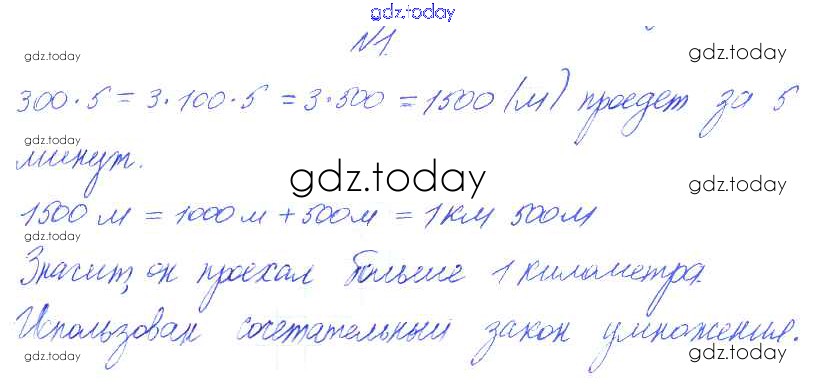 gdz.today
N1.
gdz.today gdz.today
300·5 = 3·100·5 = 3·500 = 1500 (м) проедет за 5
gdz.today gdz.today
минут.
gdz.today gdz.today
1500 м = 1000 м + 500 м = 1 км 500 м
gdz.today
Значит, он проехал больше 1 километра.
Использован сочетательный закон умножения.
gdz.today gdz.today